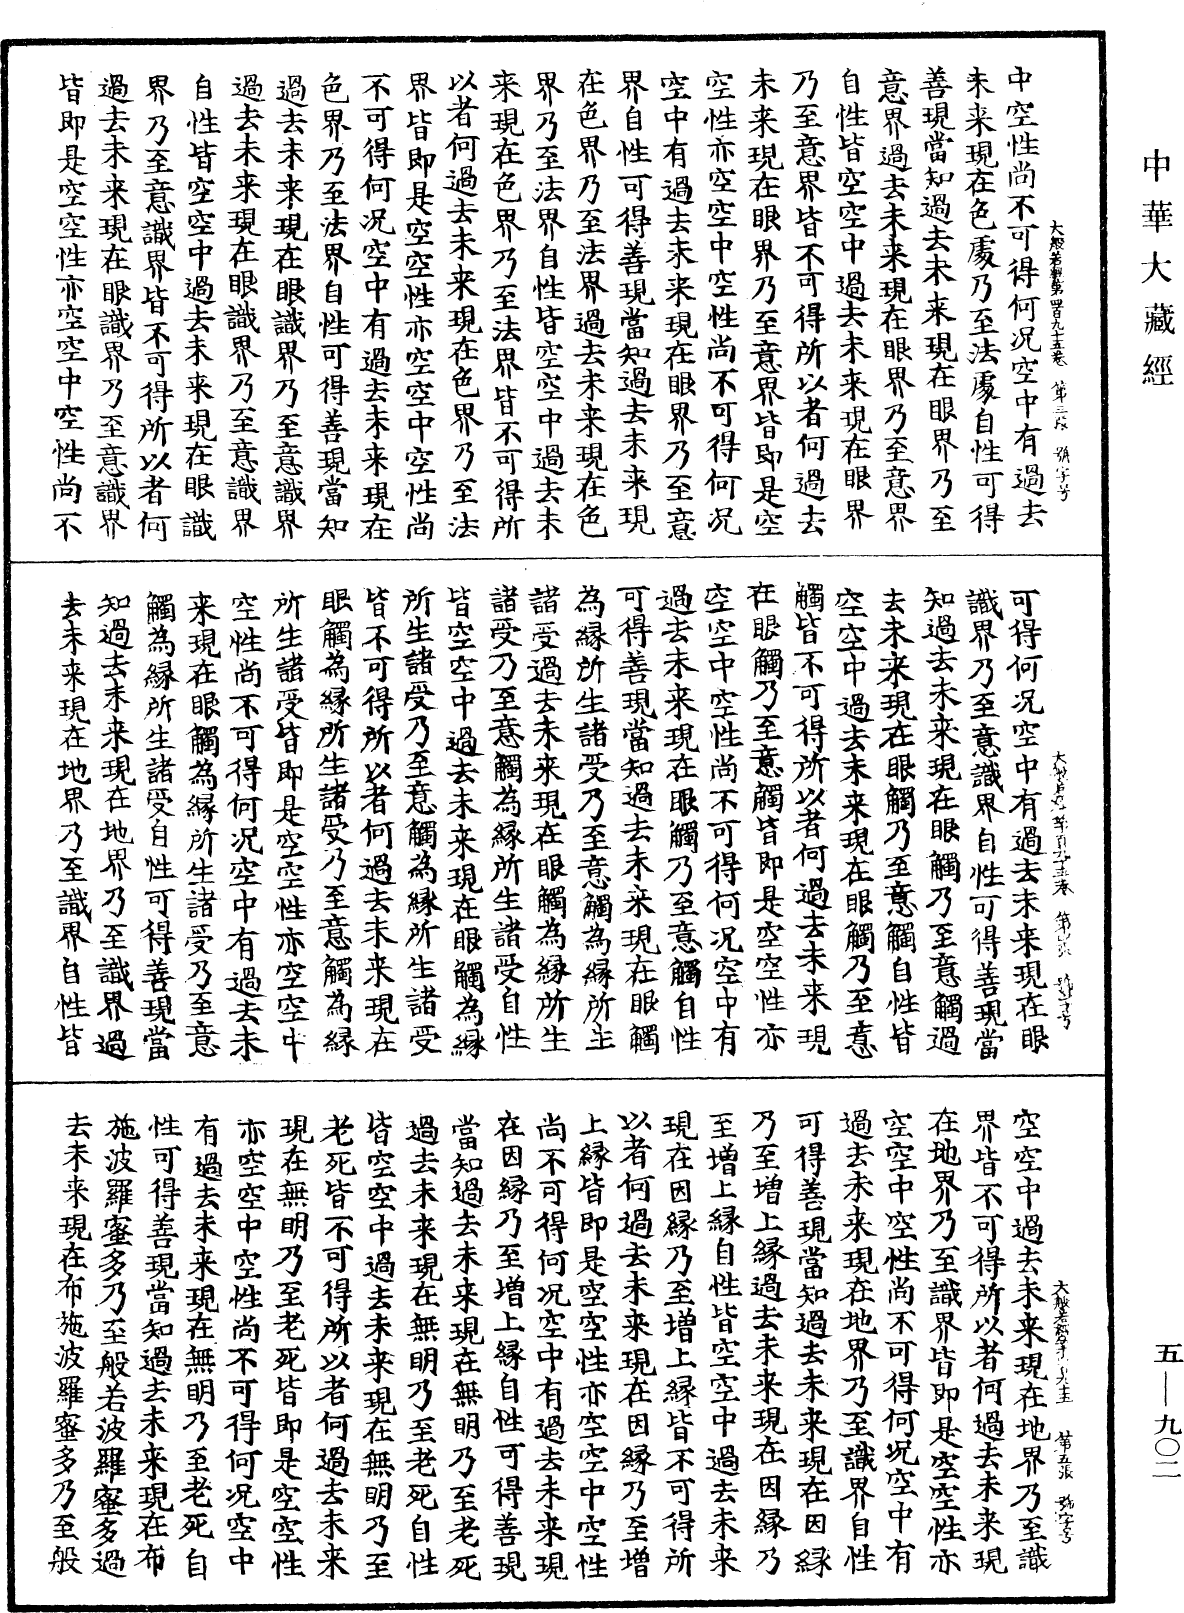 中華大藏經
中空性尚不可得何况空中有過去
未来現在色處乃至法處自性可得
善現當知過去未来現在眼界乃至
意界過去未来現在眼界乃至意界
自性皆空空中過去未来現在眼界
乃至意界皆不可得所以者何過去
未来現在眼界乃至意界皆即是空
空性亦空空中空性尚不可得何况
空中有過去未来現在眼界乃至意
界自性可得善現當知過去未来現
在色界乃至法界過去未来現在色
界乃至法界自性皆空空中過去未
来現在色界乃至法界皆不可得所
以者何過去未来現在色界乃至法
界皆即是空空性亦空空中空性尚
不可得何况空中有過去未来現在
色界乃至法界自性可得善現當知
過去未来現在眼識界乃至意識界
過去未来現在眼識界乃至意識界
自性皆空空中過去未来現在眼識
界乃至意識界皆不可得所以者何
過去未来現在眼識界乃至意識界
皆即是空空性亦空空中空性尚不
大般若經第四百九十五卷 第三張 號字号
可得何况空中有過去未来現在眼
識界乃至意識界自性可得善現當
知過去未来現在眼觸乃至意觸過
去未来現在眼觸乃至意觸自性皆
空空中過去未来現在眼觸乃至意
觸皆不可得所以者何過去未来現
在眼觸乃至意觸皆即是空空性亦
空空中空性尚不可得何况空中有
過去未来現在眼觸乃至意觸自性
可得善現當知過去未来現在眼觸
為縁所生諸受乃至意觸為縁所生
諸受過去未来現在眼觸為縁所生
諸受乃至意觸為縁所生諸受自性
皆空空中過去未来現在眼觸為縁
所生諸受乃至意觸為縁所生諸受
皆不可得所以者何過去未来現在
眼觸為縁所生諸受乃至意觸為縁
所生諸受皆即是空空性亦空空中
空性尚不可得何况空中有過去未
来現在眼觸為縁所生諸受乃至意
觸為縁所生諸受自性可得善現當
知過去未来現在地界乃至識界過
去未来現在地界乃至識界自性皆
空空中過去未来現在地界乃至識
界皆不可得所以者何過去未来現
在地界乃至識界皆即是空空性亦
空空中空性尚不可得何况空中有
過去未来現在地界乃至識界自性
可得善現當知過去未来現在因縁
乃至增上縁過去未来現在因縁乃
至增上縁自性皆空空中過去未来
現在因縁乃至增上縁皆不可得所
以者何過去未来現在因縁乃至增
上縁皆即是空空性亦空空中空性
尚不可得何况空中有過去未来現
在因縁乃至增上縁自性可得善現
當知過去未来現在無明乃至老死
過去未来現在無明乃至老死自性
皆空空中過去未来現在無明乃至
老死皆不可得所以者何過去未来
現在無明乃至老死皆即是空空性
亦空空中空性尚不可得何况空中
有過去未来現在無明乃至老死自
性可得善現當知過去未来現在布
施波羅蜜多乃至般若波羅蜜多過
去未来現在布施波羅蜜多乃至般
第五張 號字号
五—九〇二